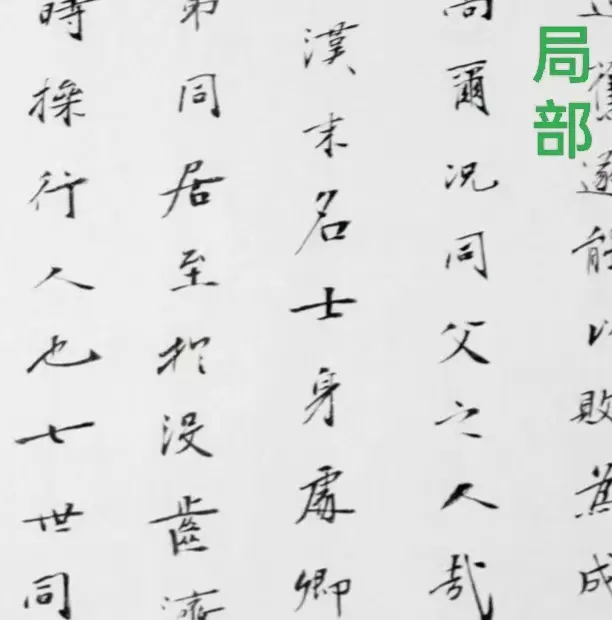 局部
舊遂能以敗為成
尚爾況同父之人哉
漢末名士身處卿
弟同居至扵没齒濟
時操行人也七世同